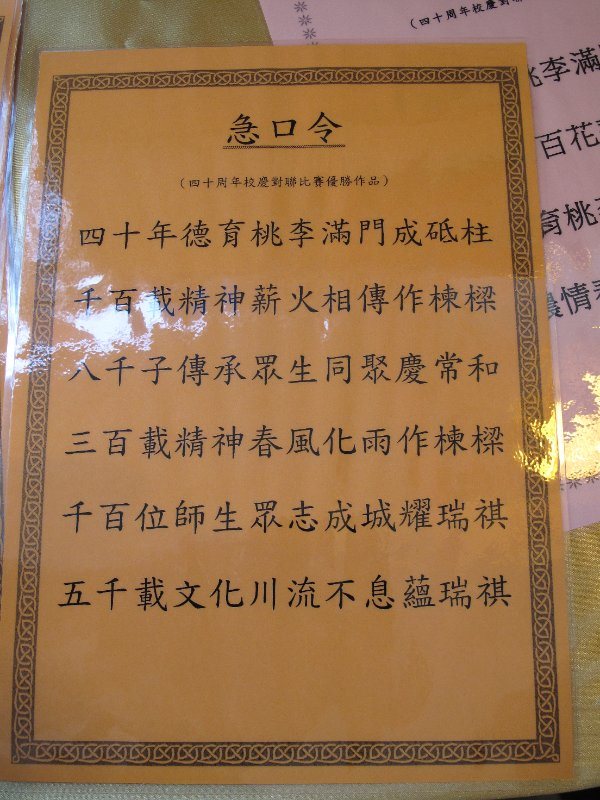 急口令
(四十周年校慶對聯比賽優勝作品)
四十年德育桃李滿門成砥柱
千百載精神薪火相傳作棟樑
八千子傳承眾生同聚慶常和
三百載精神春風化雨作棟樑
千百位師生眾志成城耀瑞祺
五千載文化川流不息蘊瑞祺
(四十周年校慶對聯
桃李滿
百花
育桃
農情